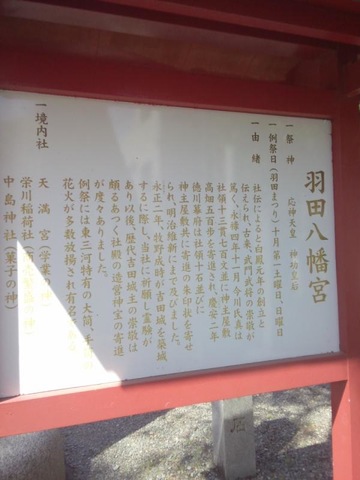 羽田八幡宮
一 祭神 応神天皇 神功皇后
一 例祭日(羽田まつり)十月第一土曜日、日曜日
一 由緒
社伝によると白鳳元年の創立と
伝えられ、古来、武門武将の崇敬が
篤く、永禄四年十一月、今川氏真は
社領十三貫七百文並に神主屋敷
高畑五百文を寄進され、慶安二年
徳川幕府は社領十石並びに
神主屋敷共に寄進の朱印状を寄せ
られ、明治維新にまで及びました。
永正二年、牧野成時が吉田城を築城
するに際し、当社に祈願し霊験が
あり以後、歴代吉田城主の崇敬は
頗るあつく社殿の造営神宝の寄進
が度々ありました。
例祭には東三河特有の大筒、手
花火が多数放揚され有名
一 境内社 天満宮(学業の神)
栄川稲荷社
中島神社(菓子の神)